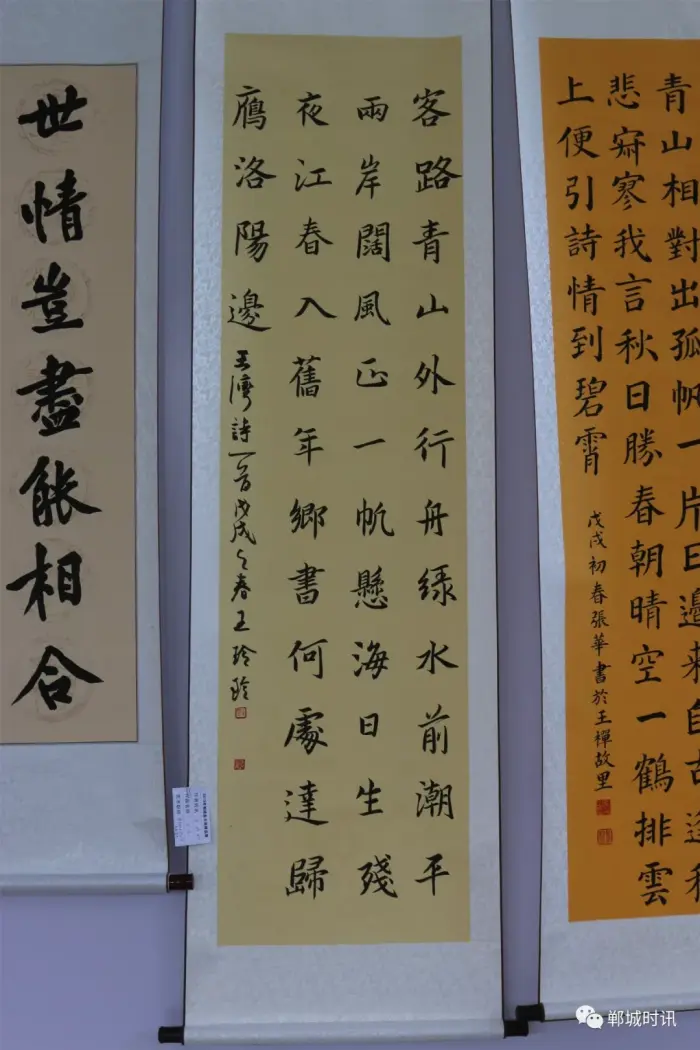 青山相對出孤帆一片日邊來自古逢秋
悲寂寥我言秋日勝春朝晴空一鶴排雲
上便引詩情到碧霄
戊戌初春張華書於王禪故里
客路青山外行舟綠水前潮平
兩岸闊風正一帆懸海日生殘
夜江春入舊年鄉書何處達歸
鴈洛陽邊
王灣詩一首戊戌之春王玲玲
世情豈盡能相合
郸城时讯